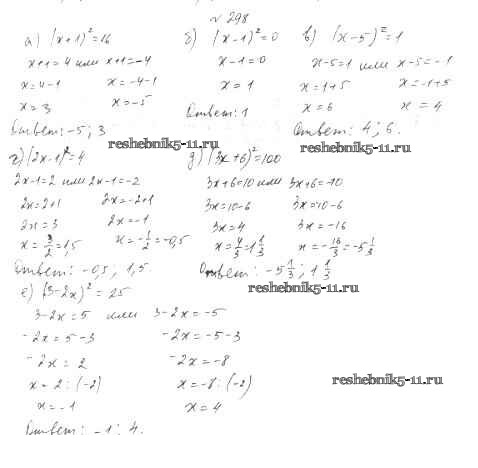 № 298
а) (x+1)²=16
x+1=4 или x+1=-4
x=4-1 x=-4-1
x=3 x=-5
Ответ: -5; 3
б) (x-1)²=0
x-1=0
x=1
Ответ: 1
в) (x-5)²=1
x-5=1 или x-5=-1
x=1+5 x=-1+5
x=6 x=4
Ответ: 4; 6.
reshebnik5-11.ru
reshebnik5-11.ru
г) (2x-1)²=4
2x-1=2 или 2x-1=-2
2x=2+1 2x=-2+1
2x=3 2x=-1
x=3/2=1,5 x=-1/2=-0,5
Ответ: -0,5; 1,5
д) (3x+6)²=100
3x+6=10 или 3x+6=-10
3x=10-6 3x=-10-6
3x=4 3x=-16
x=4/3=1 1/3 x=-16/3=-5 1/3
Ответ: -5 1/3; 1 1/3
reshebnik5-11.ru
е) (3-2x)²=25
3-2x=5 или 3-2x=-5
-2x=5-3 -2x=-5-3
-2x=2 -2x=-8
x=2:(-2) x=-8:(-2)
x=-1 x=4
Ответ: -1; 4.
reshebnik5-11.ru